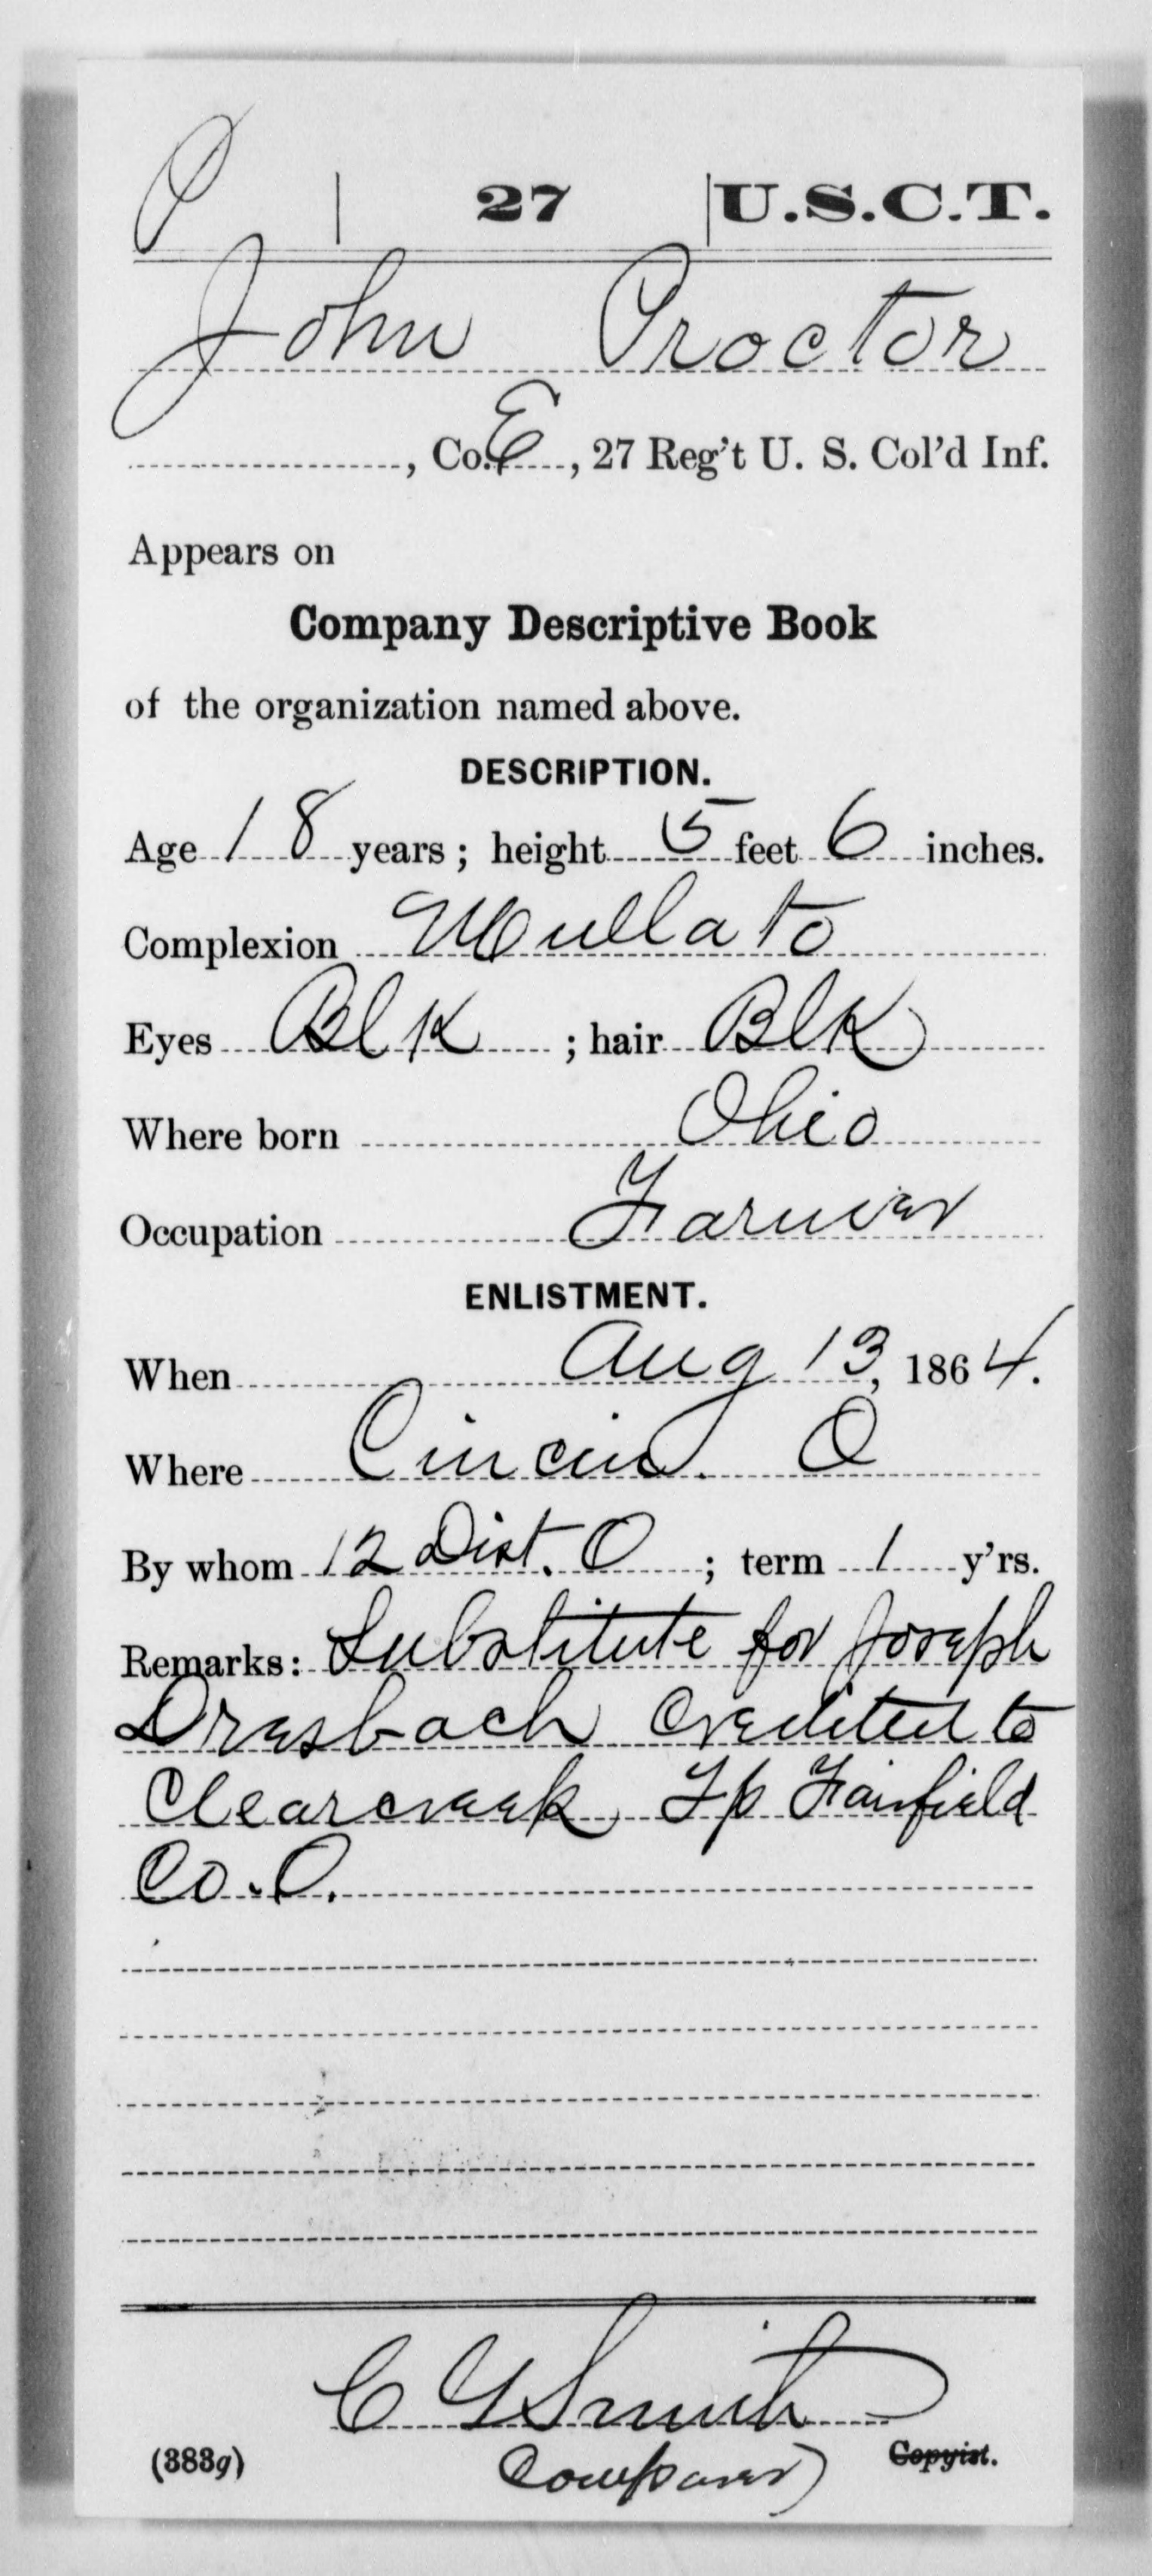 P | 27 | U.S.C.T.
John Proctor
, Co. E, 27 Reg't U. S. Col'd Inf.
Appears on
Company Descriptive Book
of the organization named above.
DESCRIPTION.
Age 18 years; height 5 feet 6 inches.
Complexion Mullato
Eyes Blk; hair Blk
Where born Ohio
Occupation Farmer
ENLISTMENT.
When Aug 13, 1864.
Where Cincin. O
By whom 12 Dist. O; term 1 y'rs.
Remarks: Substitute for Joseph
Dresbach Credited to
Clearcreek Tp Fairfield
Co. O.
C G Smith
(383g) Comparer Copyist.